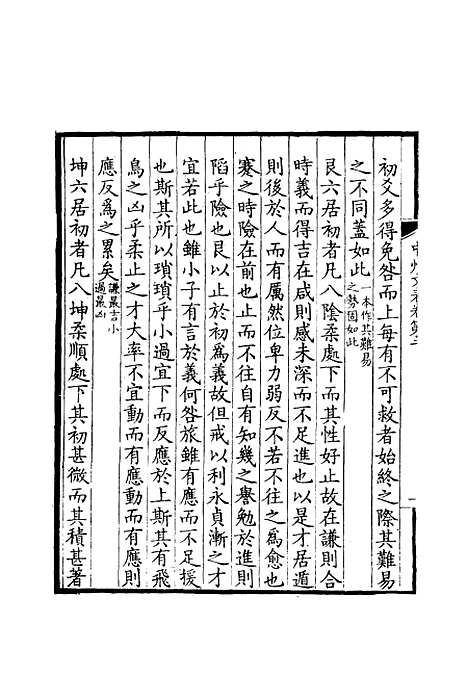 初爻多得免咎而上每有不可救者始終之際其難易
之不同蓋如此一本作其難易之勢固如此
艮六居初者凡八陰柔處下而其性好止故在謙則合
時義而得吉在咸則感未深而不足進也以是才居遁
則後於人而有厲然位卑力弱反不若不往之為愈也
蹇之時險在前也止而不往自有知幾之譽勉於進則
陷乎險也艮以止於初為義故但戒以利永貞漸之才
宜若此也雖小子有言於義何咎旅雖有應而不足援
也斯其所以瑣瑣乎小過宜下而反應於上斯其有飛
鳥之凶乎柔止之才大率不宜動而有應動而有應則
應反為之累矣謙最吉小過最凶
坤六居初者凡八坤柔順處下其初甚微而其積甚著